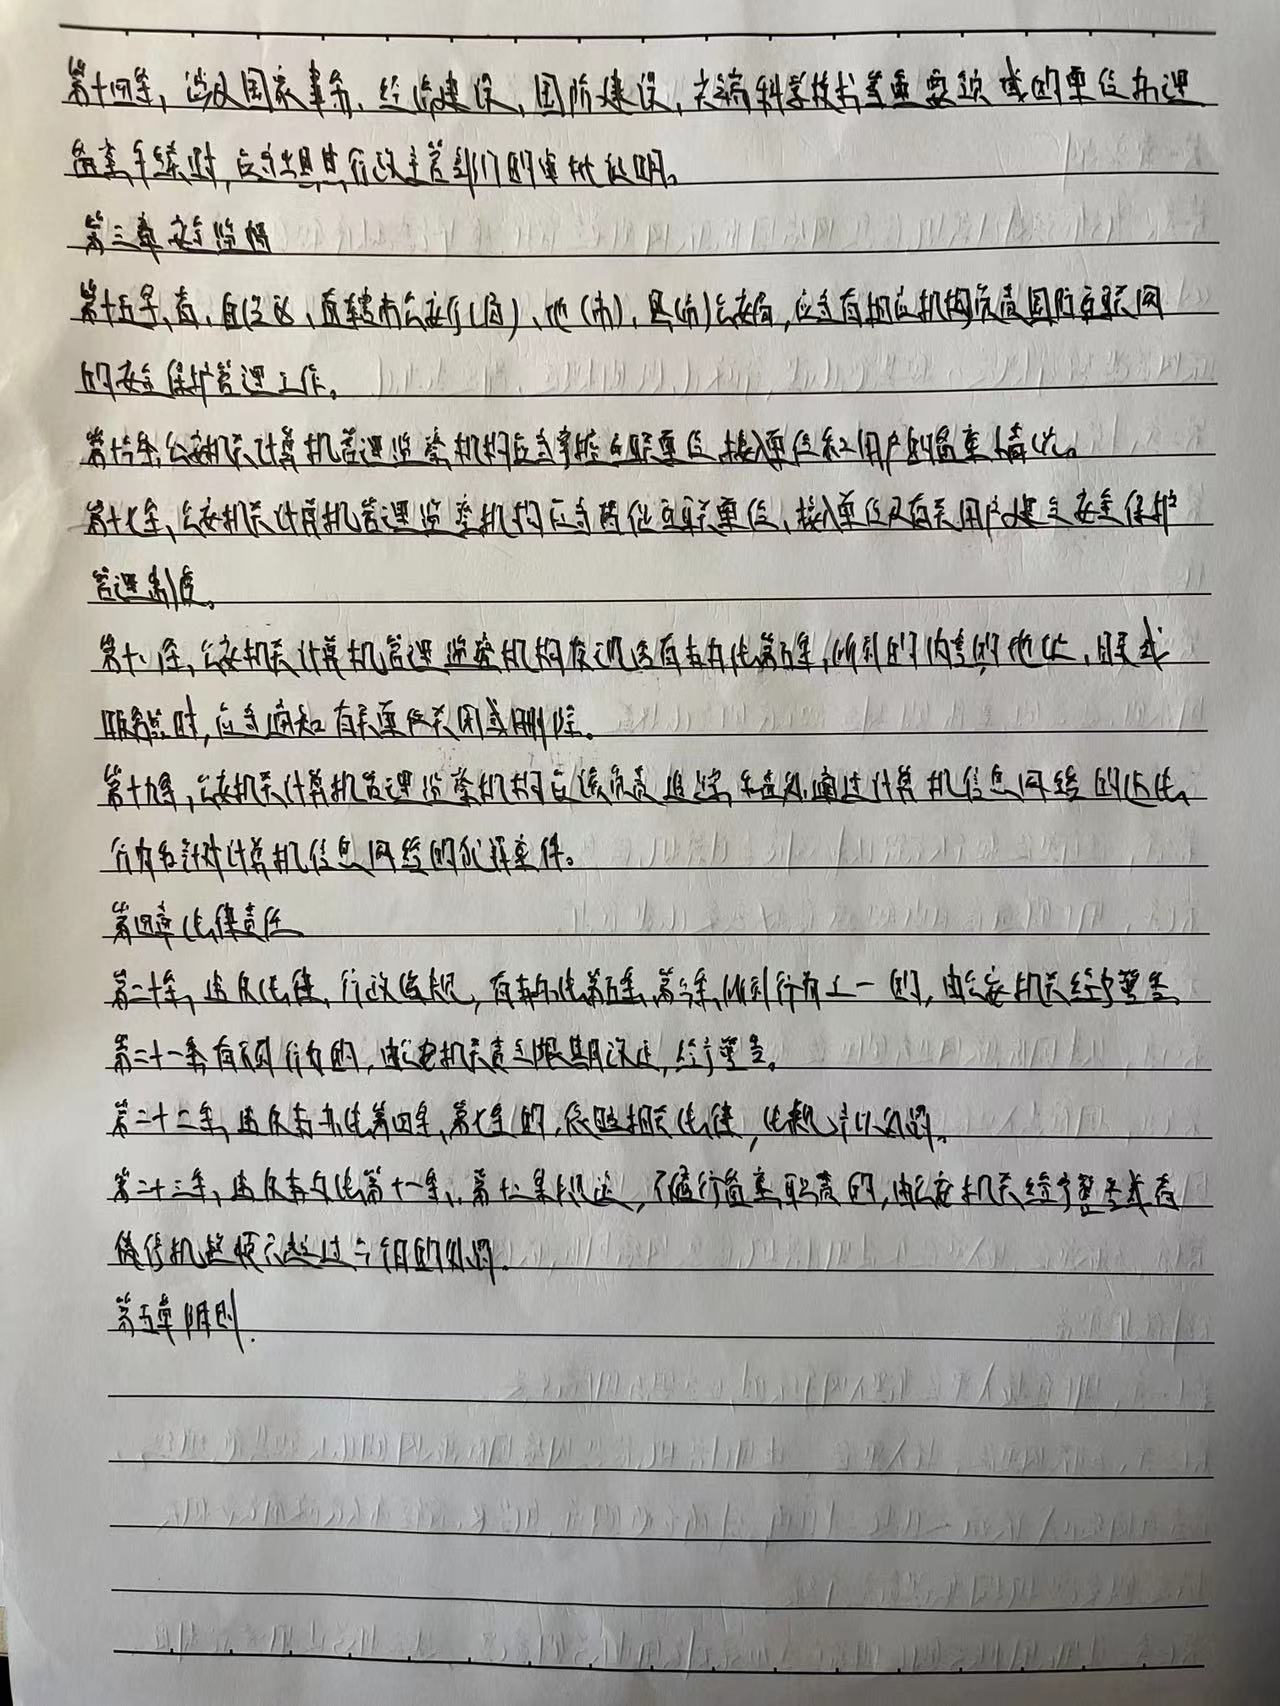 第十四条，涉及国家事务、经济建设、国防建设、尖端科学技术等重要领域的单位办理
备案手续时，应当出具其行政主管部门的审批证明。
第三章安全监督
第十五条、省、自治区、直辖市公安厅(局)、地(市)、县(市)公安局，应当有相应机构负责国际互联网
的安全保护管理工作。
第十六条、公安机关计算机管理监察机构应当掌握互联单位、接入单位和用户的备案情况。
第十七条、公安机关计算机管理监察机构应当督促互联单位、接入单位及有关用户建立安全保护
管理制度。
第十八条，公安机关计算机管理监察机构发现含有本办法第五条，所列的内容的地址、目录或
服务器时，应当通知有关单位关闭或删除。
第十九条，公安机关计算机管理监察机构应该负责追踪和查处通过计算机信息网络的违法
行为和针对计算机信息网络的犯罪案件。
第四章法律责任
第二十条，违反法律、行政法规，有本办法第五条、第六条，所列行为之一的，由公安机关给予警告
第二十一条有下列行为的，由公安机关责令限期改正，给予警告。
第二十二条，违反本办法第四条、第七条的，依照相关法律，法规予以处罚。
第二十三条，违反本办法第十一条、第十二条规定，不履行备案职责的，由公安机关给予警告或者
停机整顿不超过六个月的处罚.
第五章附则.